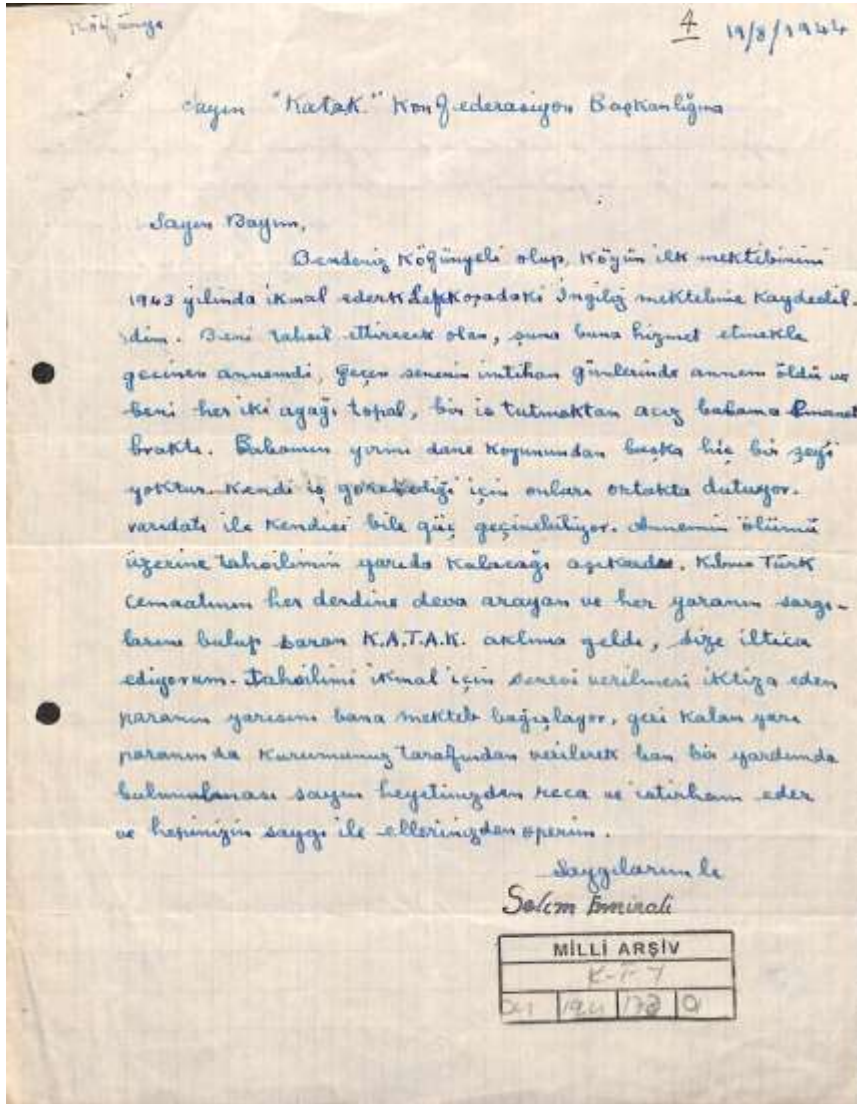 4 19/8/1944
Sayın "Katak" Konfederasyon Başkanlığına
Sayın Bayım,
Bendeniz Köfünyeli olup, Köyün ilk mektibinini
1943 yılında ikmal ederk Lefkoşadaki İngiliz mektebine Kaydedil-
dim. Beni tahsil ettirecek olan, şuna buna hizmet etmekle
geçinen annemdi, geçen senenin imtihan günlerinde annem öldü ve
beni her iki ayağı topal, bir iş tutmaktan aciz babama Emanet
braktı. Babamın yirmi dane Koyunundan başka hiç bir şeyi
yoktur. Kendi iş göremediği için onları ortakta dutuyor.
varidatı ile Kendisi bile güç geçinebiliyor. Annemin ölümü
üzerine tahsilimin yarıda Kalacağı aşikardır. Kıbrıs Türk
Cemaatının her derdine deva arayan ve her yaranın sargı-
larını bulup saran K.A.T.A.K. aklıma geldi, size iltica
ediyorum. Tahsilimi ikmal için senevi verilmesi iktiza eden
paranın yarısını bana mekteb bağışlayor, geri Kalan yarı
paranın da Kurumunuz tarafından verilerek ban bir yardımda
bulunulması sayın heyetinizden reca ve istirham eder
ve hepinizin saygı ile ellerinizden öperim.
Saygılarımla
Selim Emirali
MİLLİ ARŞİV